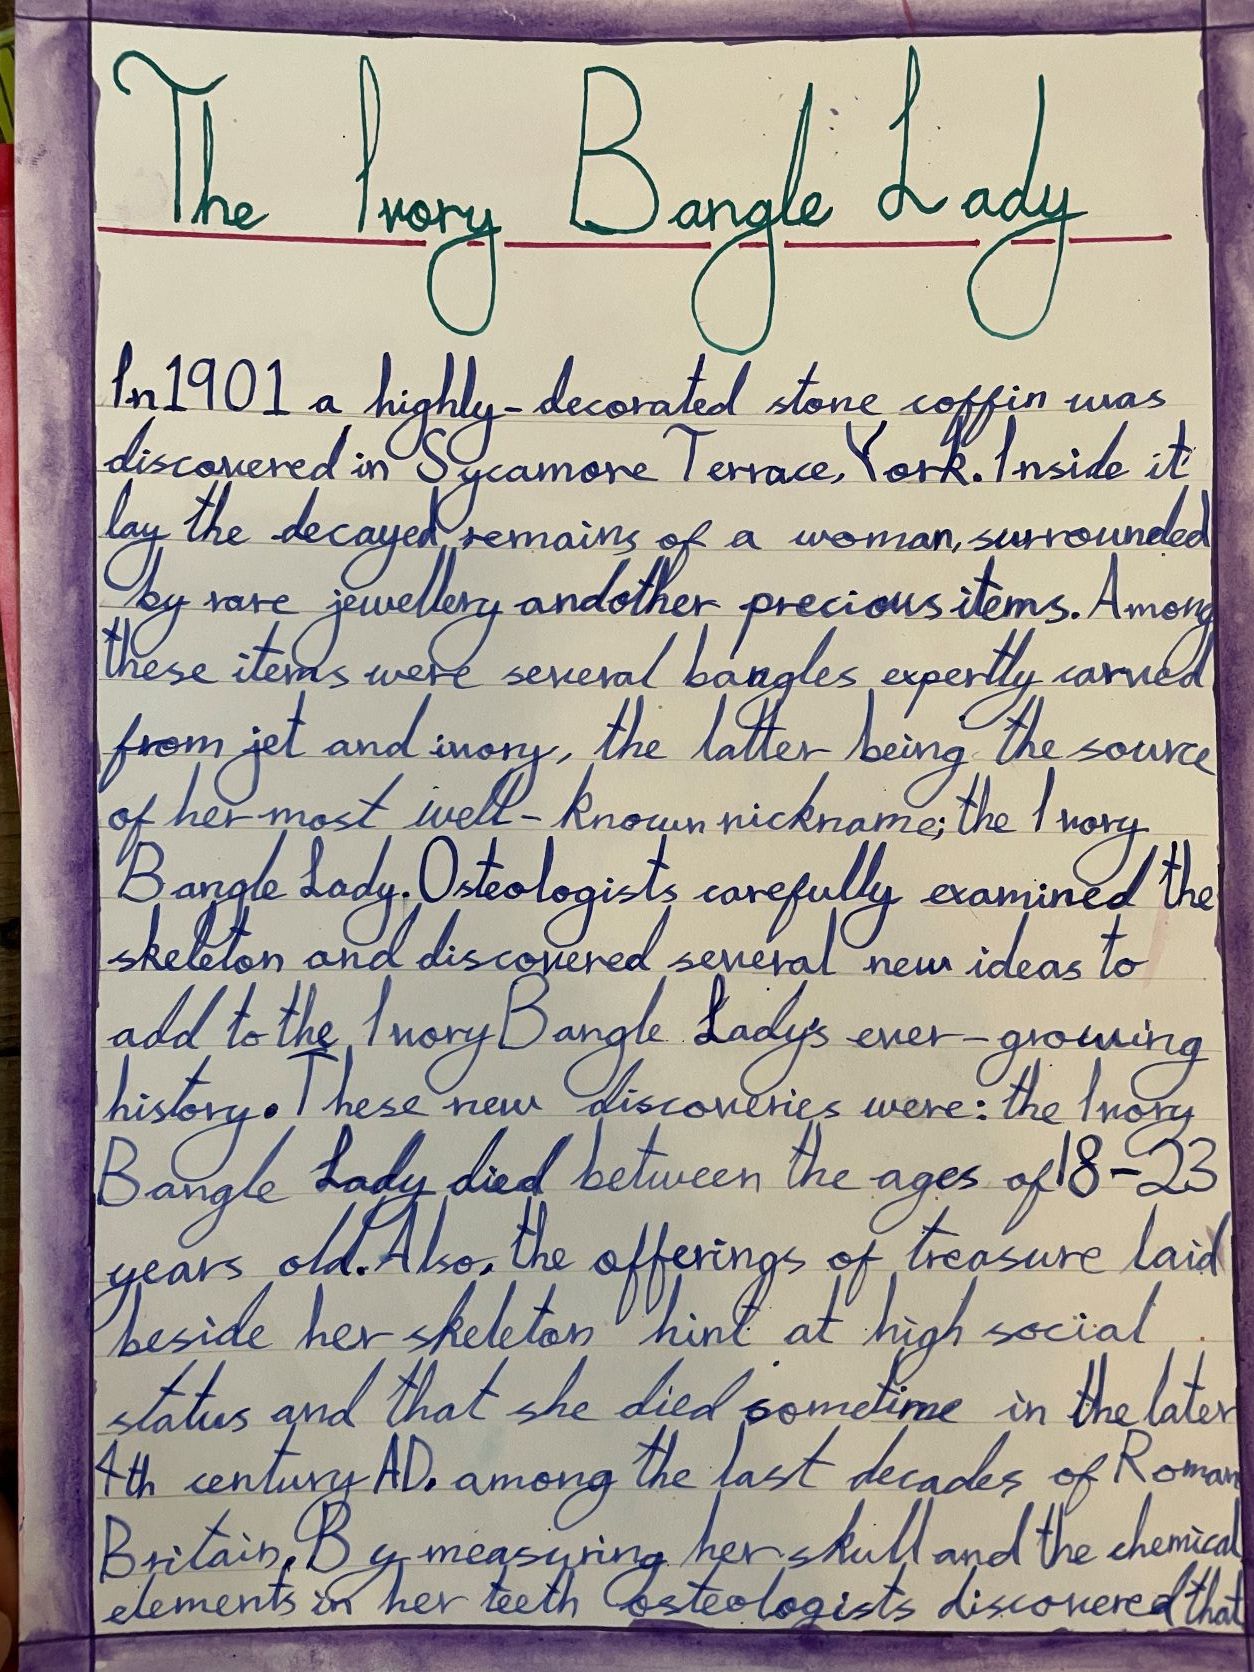 The Ivory Bangle Lady
In 1901 a highly-decorated stone coffin was
discovered in Sycamore Terrace, York. Inside it
lay the decayed remains of a woman, surrounded
by rare jewellery and other precious items. Among
these items were several bangles expertly carved
from jet and ivory, the latter being the source
of her most well-known nickname; the Ivory
Bangle Lady. Osteologists carefully examined the
skeleton and discovered several new ideas to
add to the Ivory Bangle Lady's ever-growing
history. These new discoveries were: the Ivory
Bangle Lady died between the ages of 18-23
years old. Also, the offerings of treasure laid
beside her skeleton hint at high social
status and that she died sometime in the later
4th century AD. among the last decades of Roman
Britain. By measuring her skull and the chemical
elements in her teeth osteologists discovered that